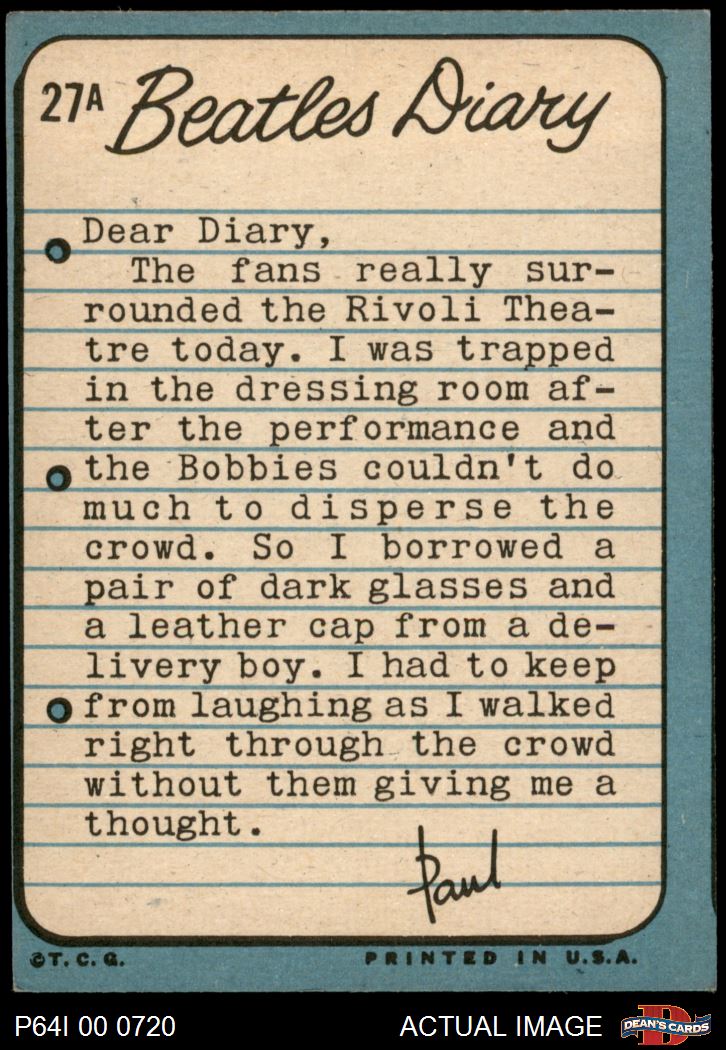 27A Beatles Diary
Dear Diary,
The fans really sur-
rounded the Rivoli Thea-
tre today. I was trapped
in the dressing room af-
ter the performance and
the Bobbies couldn't do
much to disperse the
crowd. So I borrowed a
pair of dark glasses and
a leather cap from a de-
livery boy. I had to keep
from laughing as I walked
right through the crowd
without them giving me a
thought.
Paul
©T.C.G. PRINTED IN U.S.A.
P64I 00 0720 ACTUAL IMAGE D DEAN'S CARDS